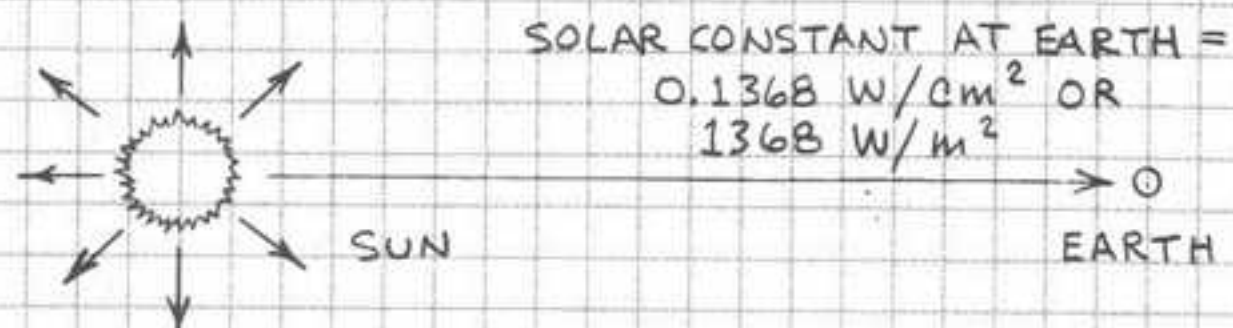 SOLAR CONSTANT AT EARTH =
0.1368 W/cm² OR
1368 W/m²
SUN
EARTH